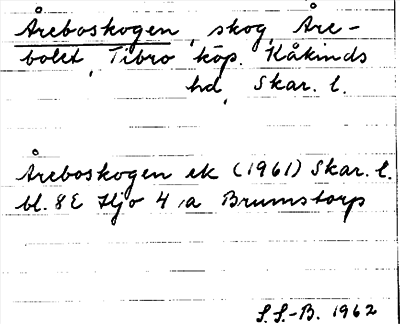 Åreboskogen, skog, Åre-
bolet, Tibro köp. Kåkinds
hd, Skar. l.
Åreboskogen ek (1961) Skar. l.
bl. 8E Hjo 4 a Brumstorp
S.S.-B. 1962